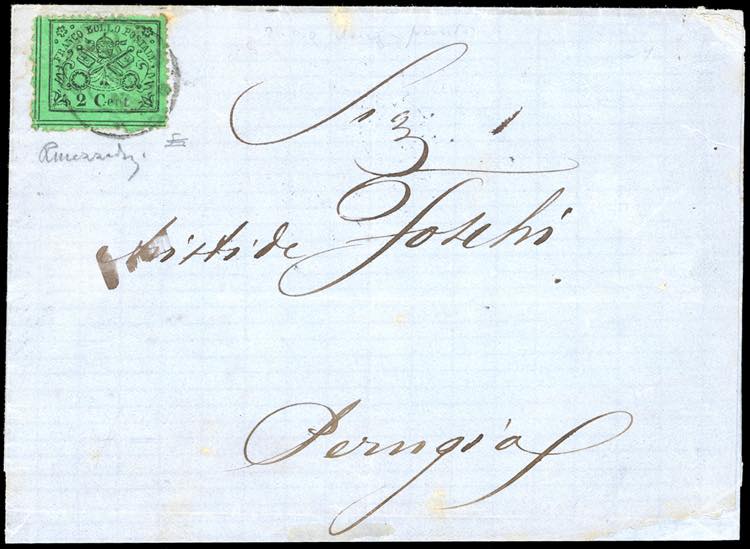 FRANCO BOLLO POSTALE
2 Cent.
Sig.
Aristide Foschi
Perugia